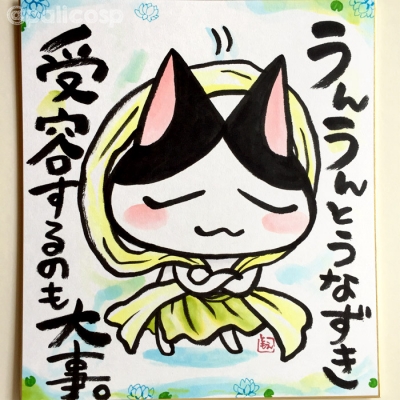 うんうんとうなずき
受容するのも大事。
@palicosp